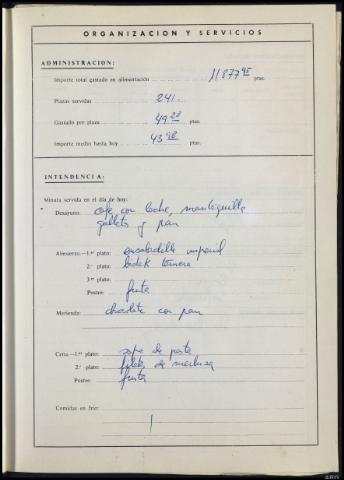 ORGANIZACION Y SERVICIOS
ADMINISTRACION:
Importe total gastado en alimentación 11.877 95 ptas.
Plazas servidas 241.-
Gastado por plaza 49 28 ptas.
Importe medio hasta hoy 43 98 ptas.
INTENDENCIA:
Minuta servida en el día de hoy:
Desayuno: café con leche, mantequilla
galletas y pan
Almuerzo.—1.er plato: ensaladilla imperial
2.º plato: bistek ternera
3.er plato:
Postre: fruta
Merienda: chocolate con pan
Cena.—1.er plato: sopa de pasta
2.º plato: filetes de merluza
Postre: fruta
Comidas en frío: